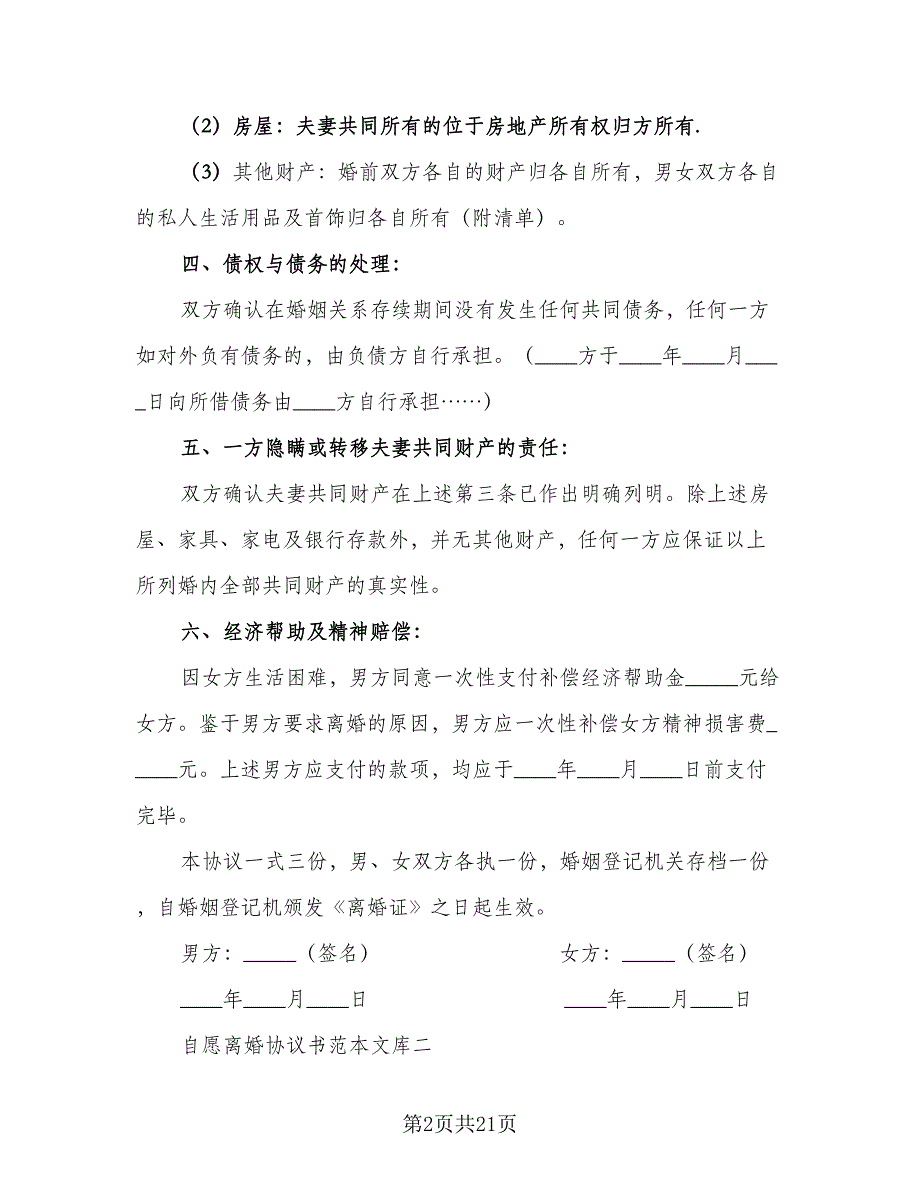 （2）房屋：夫妻共同所有的位于房地产所有权归方所有.
（3）其他财产：婚前双方各自的财产归各自所有，男女双方各自
的私人生活用品及首饰归各自所有（附清单）。
四、债权与债务的处理：
双方确认在婚姻关系存续期间没有发生任何共同债务，任何一方
如对外负有债务的，由负债方自行承担。（____方于____年____月___
_日向所借债务由____方自行承担……）
五、一方隐瞒或转移夫妻共同财产的责任：
双方确认夫妻共同财产在上述第三条已作出明确列明。除上述房
屋、家具、家电及银行存款外，并无其他财产，任何一方应保证以上
所列婚内全部共同财产的真实性。
六、经济帮助及精神赔偿：
因女方生活困难，男方同意一次性支付补偿经济帮助金_____元给
女方。鉴于男方要求离婚的原因，男方应一次性补偿女方精神损害费_
____元。上述男方应支付的款项，均应于____年____月____日前支付
完毕。
本协议一式三份，男、女双方各执一份，婚姻登记机关存档一份
，自婚姻登记机颁发《离婚证》之日起生效。
男方：_____（签名） 女方：_____（签名）
____年____月____日 ____年____月____日
自愿离婚协议书范本文库二
第2页共21页